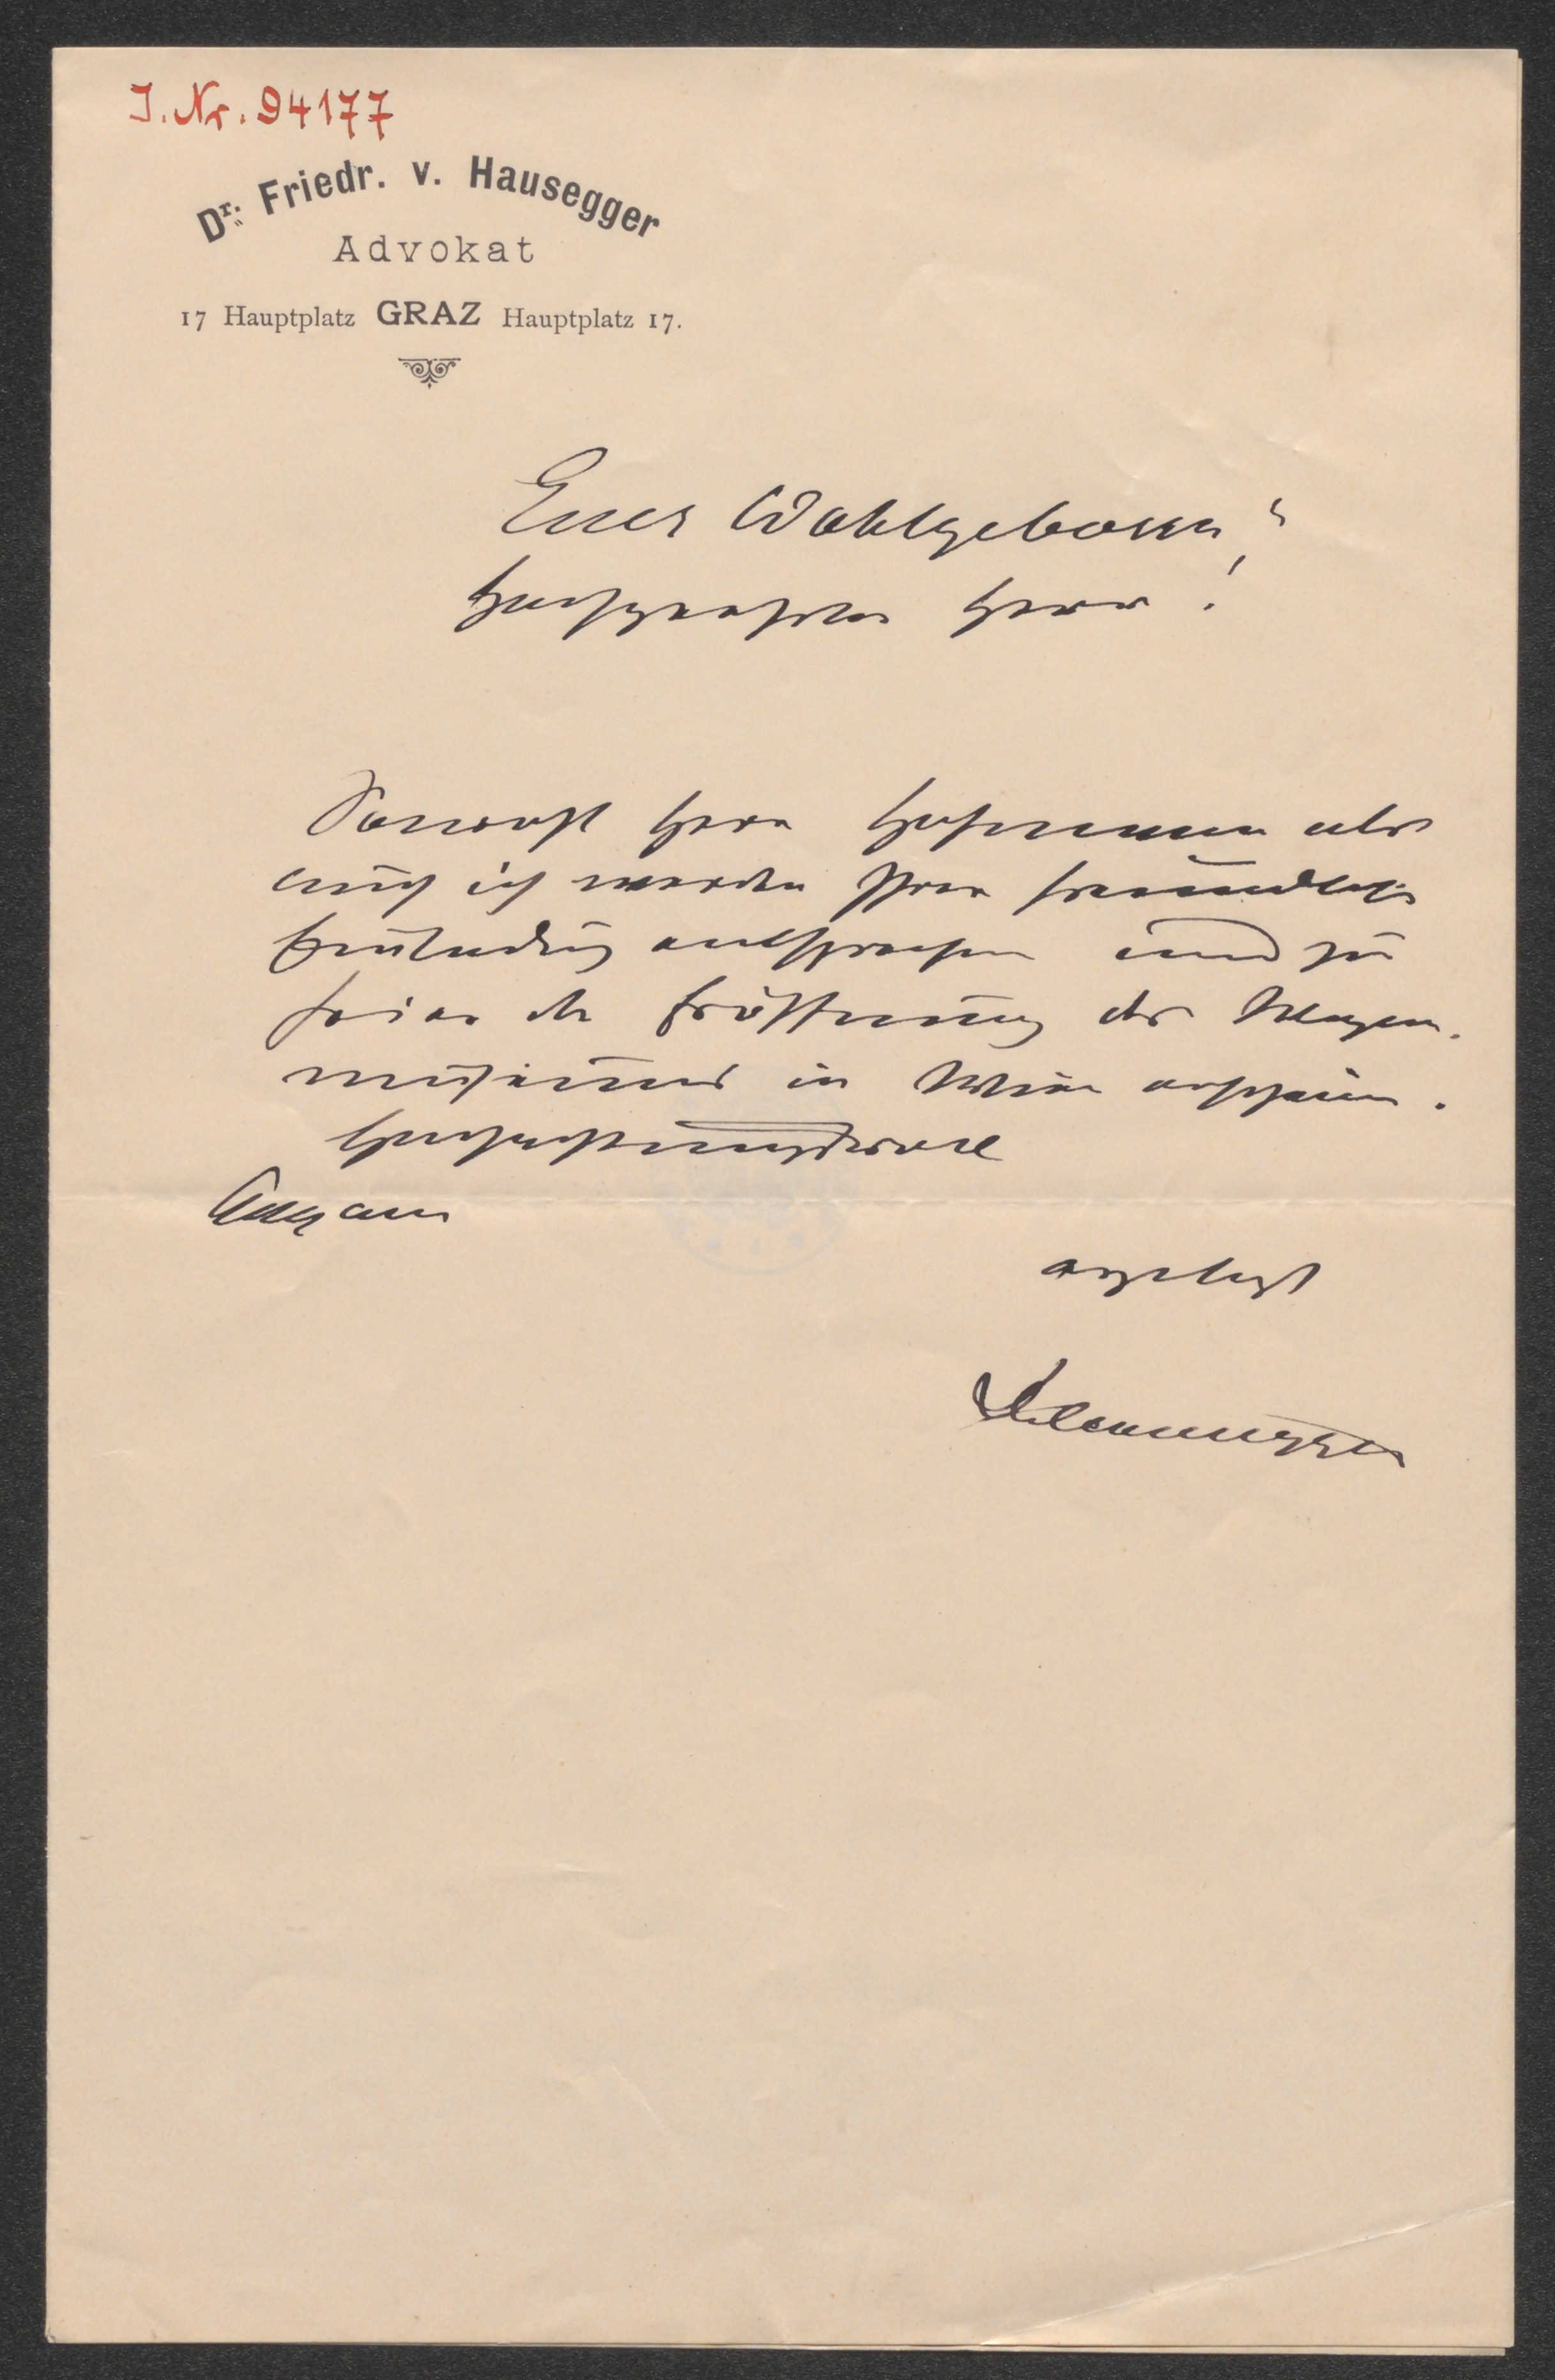 I. Nr. 94177
Dr. Friedr. v. Hausegger
Advokat
17 Hauptplatz GRAZ Hauptplatz 17.
Euer Wohlgeboren,
Hochgeehrter Herr!
Sowohl Herr Hofmann als
auch ich werden Ihrer freundlichen
Einladung entsprechen und zur
Feier der Eröffnung des Wagner-
museums in Wien erscheinen.
Hochachtungsvoll
ergebenst
DrHausegger